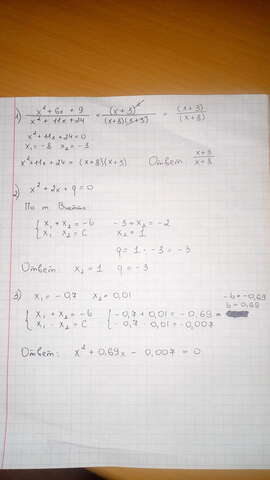 1) (x² + 6x + 9)/(x² + 11x + 24) = (x+3)²/((x+8)(x+3)) = (x+3)/(x+8)
x² + 11x + 24 = 0
x₁ = -8 x₂ = -3
x² + 11x + 24 = (x+8)(x+3) Ответ: (x+3)/(x+8)
2) x² + 2x + q = 0
По т. Виета:
{ x₁ + x₂ = -b -3 + x₂ = -2
x₁ x₂ = C x₂ = 1
q = 1 · -3 = -3
Ответ: x₂ = 1 q = -3
3) x₁ = -0,7 x₂ = 0,01 -b = -0,69
b = 0,69
{ x₁ + x₂ = -b { -0,7 + 0,01 = -0,69 =
x₁ · x₂ = C -0,7 · 0,01 = -0,007
Ответ: x² + 0,69x - 0,007 = 0